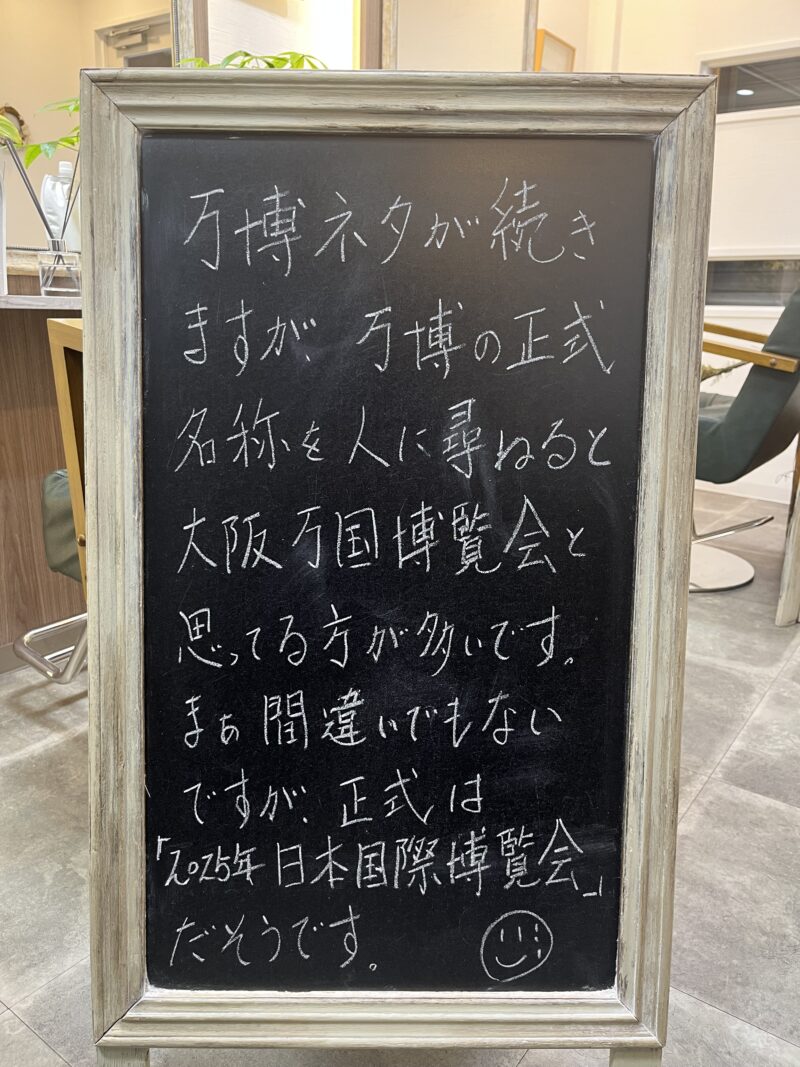 万博ネタが続き
ますが、万博の正式
名称を人に尋ねると
大阪万国博覧会と
思ってる方が多いです。
まぁ間違いでもない
ですが、正式は
「2025年日本国際博覧会」
だそうです。